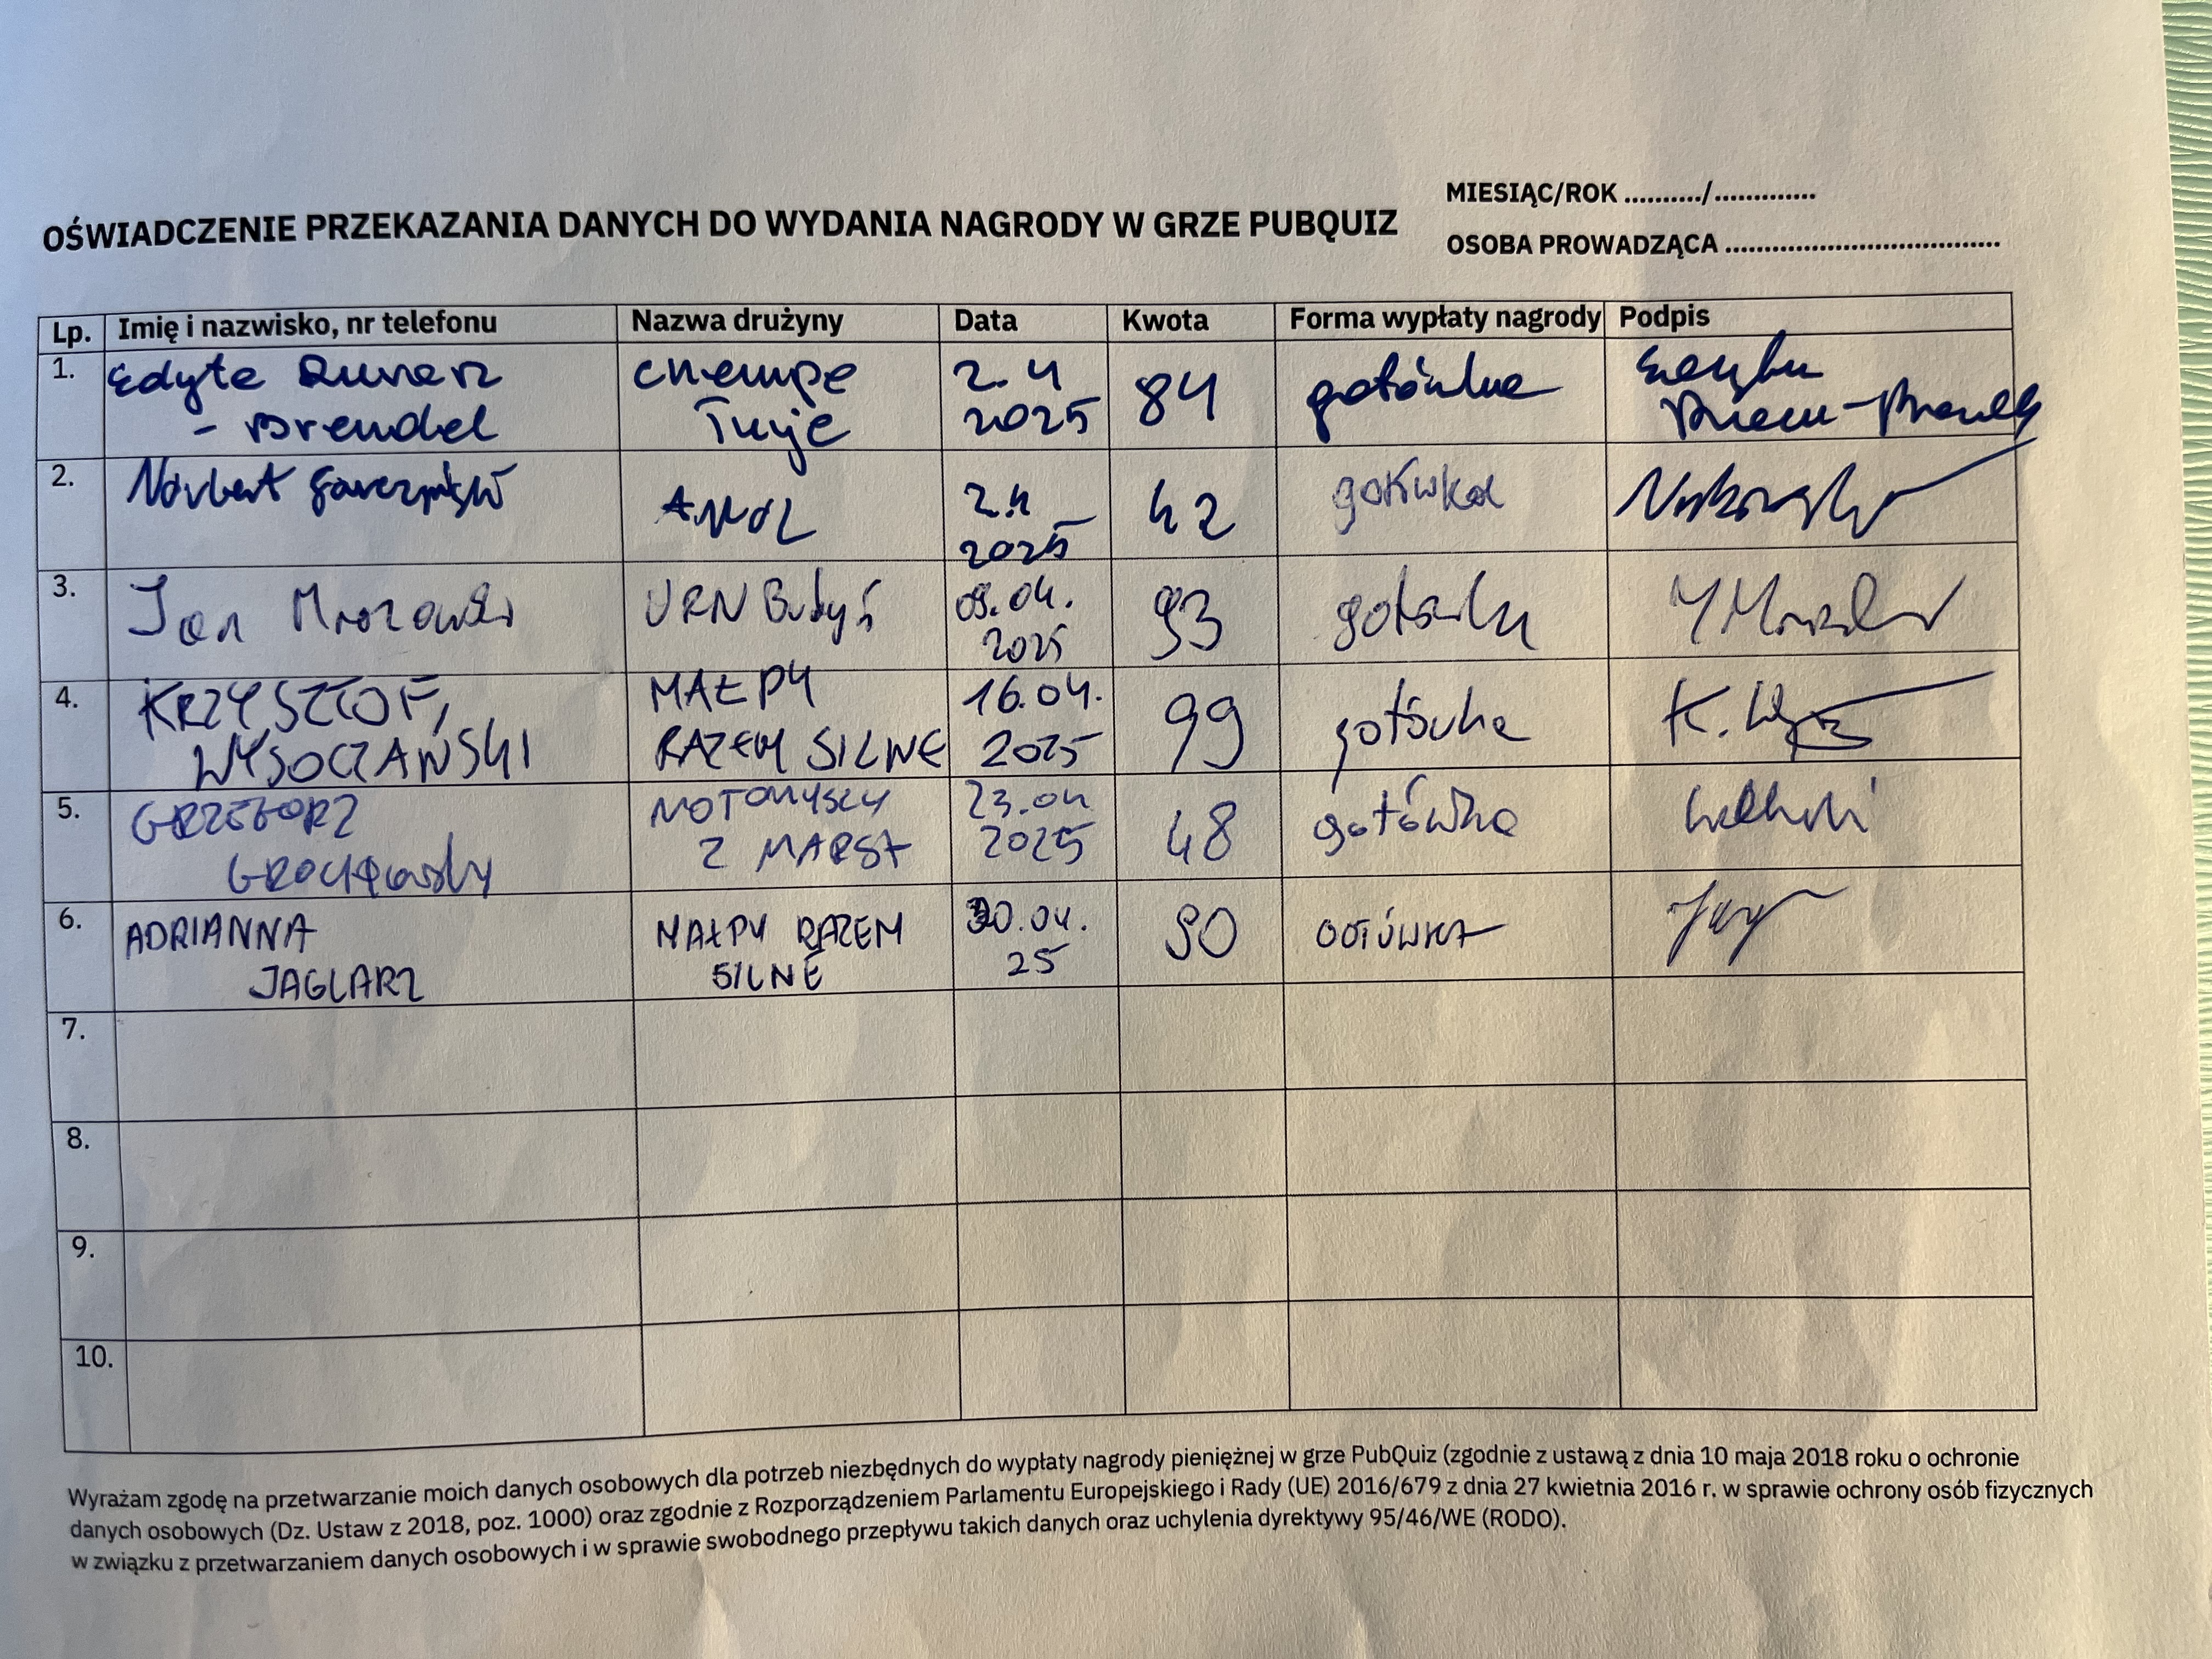 OŚWIADCZENIE PRZEKAZANIA DANYCH DO WYDANIA NAGRODY W GRZE PUBQUIZ
MIESIĄC/ROK ........../.............
OSOBA PROWADZĄCA ..................................
Lp. Imię i nazwisko, nr telefonu Nazwa drużyny Data Kwota Forma wypłaty nagrody Podpis
1. Edyta
- Brendel
2.4
2025
84
gotówka
2. Norbert
2.4
2025
42
gotówka
3. Jan Mrozowski
URN Budyń
09.04.
2025
93
gotówka
4. KRZYSZTOF
WYSOCZAŃSKI
MAŁPY
RAZEM SILNE
16.04.
2025
99
gotówka
K.
5. GRZEGORZ
GROCHOWSKI
MOTOMYSZY
Z MARSA
23.04
2025
48
gotówka
6. ADRIANNA
JAGLARZ
MAŁPY RAZEM
SILNE
30.04.
25
90
GOTÓWKA
7.
8.
9.
10.
Wyrażam zgodę na przetwarzanie moich danych osobowych dla potrzeb niezbędnych do wypłaty nagrody pieniężnej w grze PubQuiz (zgodnie z ustawą z dnia 10 maja 2018 roku o ochronie
danych osobowych (Dz. Ustaw z 2018, poz. 1000) oraz zgodnie z Rozporządzeniem Parlamentu Europejskiego i Rady (UE) 2016/679 z dnia 27 kwietnia 2016 r. w sprawie ochrony osób fizycznych
w związku z przetwarzaniem danych osobowych i w sprawie swobodnego przepływu takich danych oraz uchylenia dyrektywy 95/46/WE (RODO).